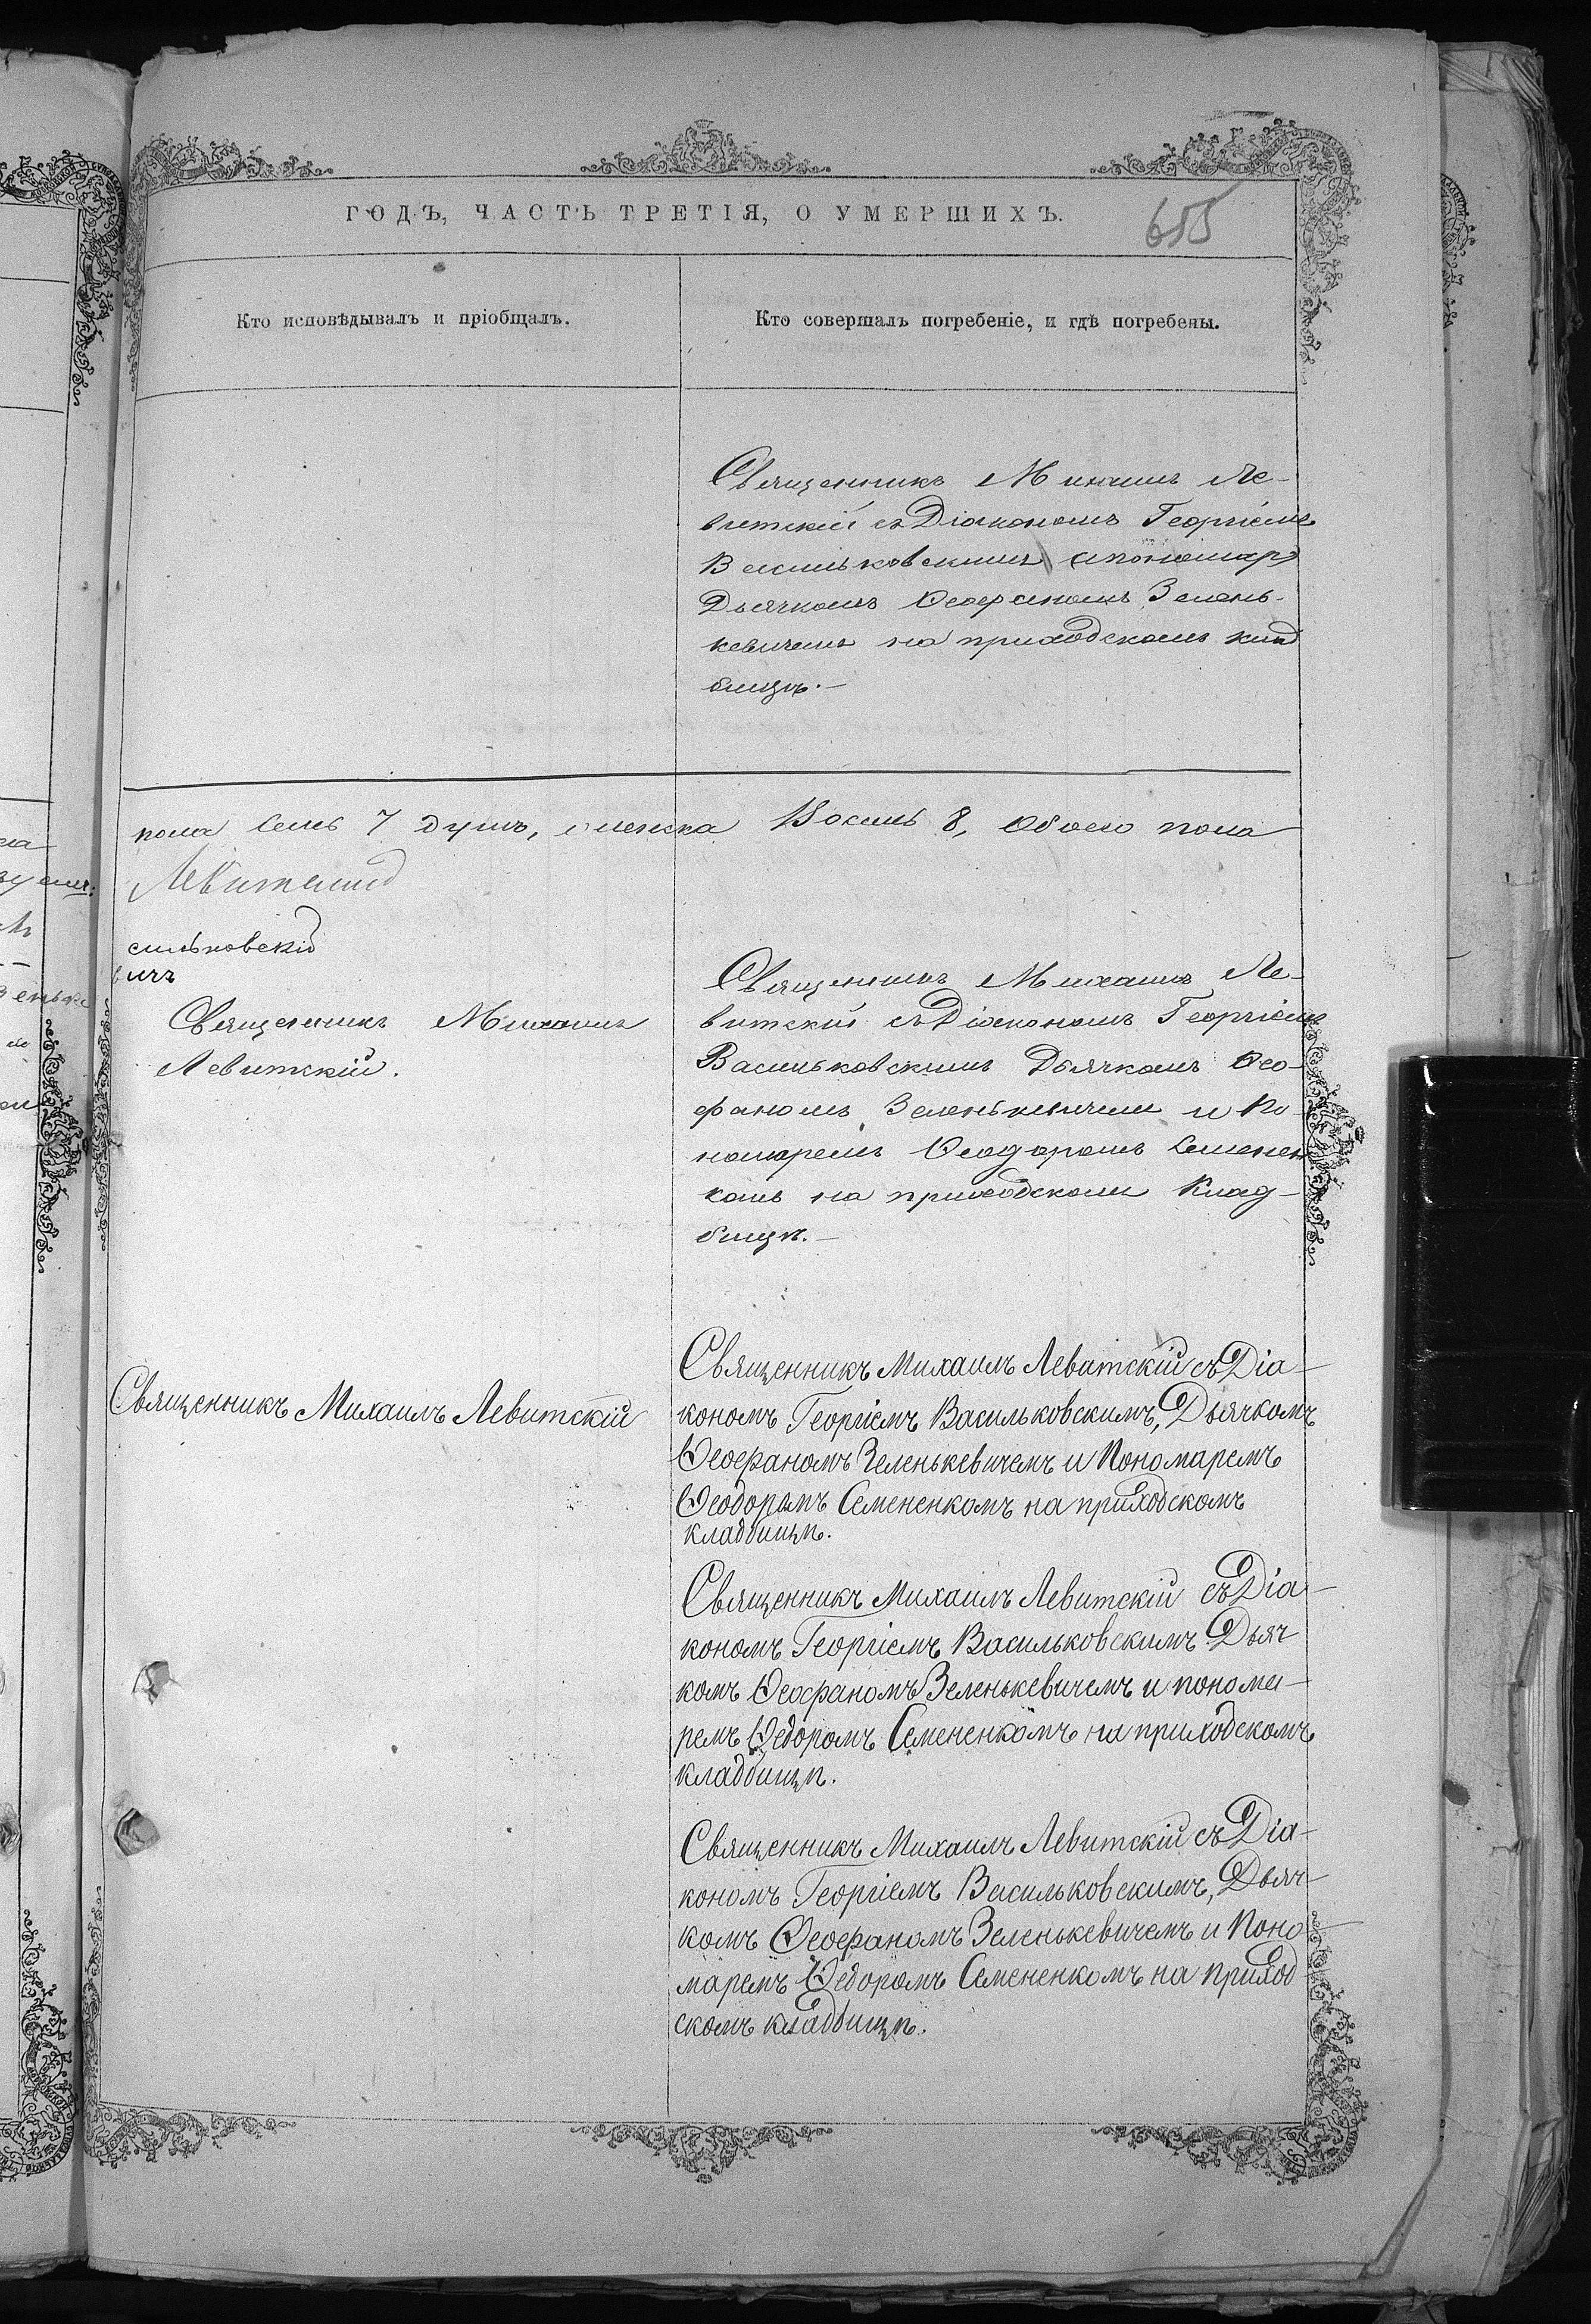 ГОДЪ, ЧАСТЬ ТРЕТІЯ, О УМЕРШИХЪ.
655
Кто исповѣдывалъ и пріобщалъ.
Кто совершалъ погребеніе, и гдѣ погребены.
Священникъ Михаилъ Ле-
витскій съ Діакономъ Георгіемъ
Васильковскимъ
Дьячкомъ Ѳеофаномъ Зелень-
кевичемъ на приходскомъ клад
бищѣ.—
пола семь 7 душъ, женска Восемь 8, Обоего пола
Левитскій
сильковскій
вичъ
Священникъ Михаилъ
Левитскій.
Священникъ Михаилъ Ле-
витскій съ Діакономъ Георгіемъ
Васильковскимъ Дьячкомъ Ѳео-
фаномъ Зеленькевичемъ и По-
номаремъ Ѳеодоромъ Семенен
комъ на приходскомъ Клад-
бищѣ.—
Священникъ Михаилъ Левитскій
Священникъ Михаилъ Левитскій съ Діа-
кономъ Георгіемъ Васильковскимъ, Дьячкомъ
Ѳеофаномъ Зеленькевичемъ и Пономаремъ
Ѳеодоромъ Семененкомъ на приходскомъ
кладбищѣ.
Священникъ Михаилъ Левитскій съ Діа-
кономъ Георгіемъ Васильковскимъ Дьяч
комъ Ѳеофаномъ Зеленькевичемъ и понома-
ремъ Ѳедоромъ Семененкомъ на приходскомъ
кладбищѣ.
Священникъ Михаилъ Левитскій съ Діа-
кономъ Георгіемъ Васильковскимъ, Дьяч-
комъ Ѳеофаномъ Зеленькевичемъ и Поно-
маремъ Ѳедоромъ Семененкомъ на приход
скомъ кладбищѣ.